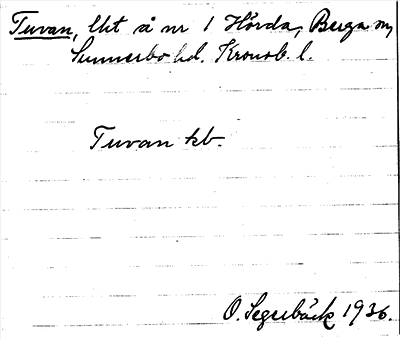 Tuvan, lht å nr 1 Hörda, Berga sn,
Sunnerbo hd. Kronob. l.
Tuvan kb.
O. Segerbäck 1936.